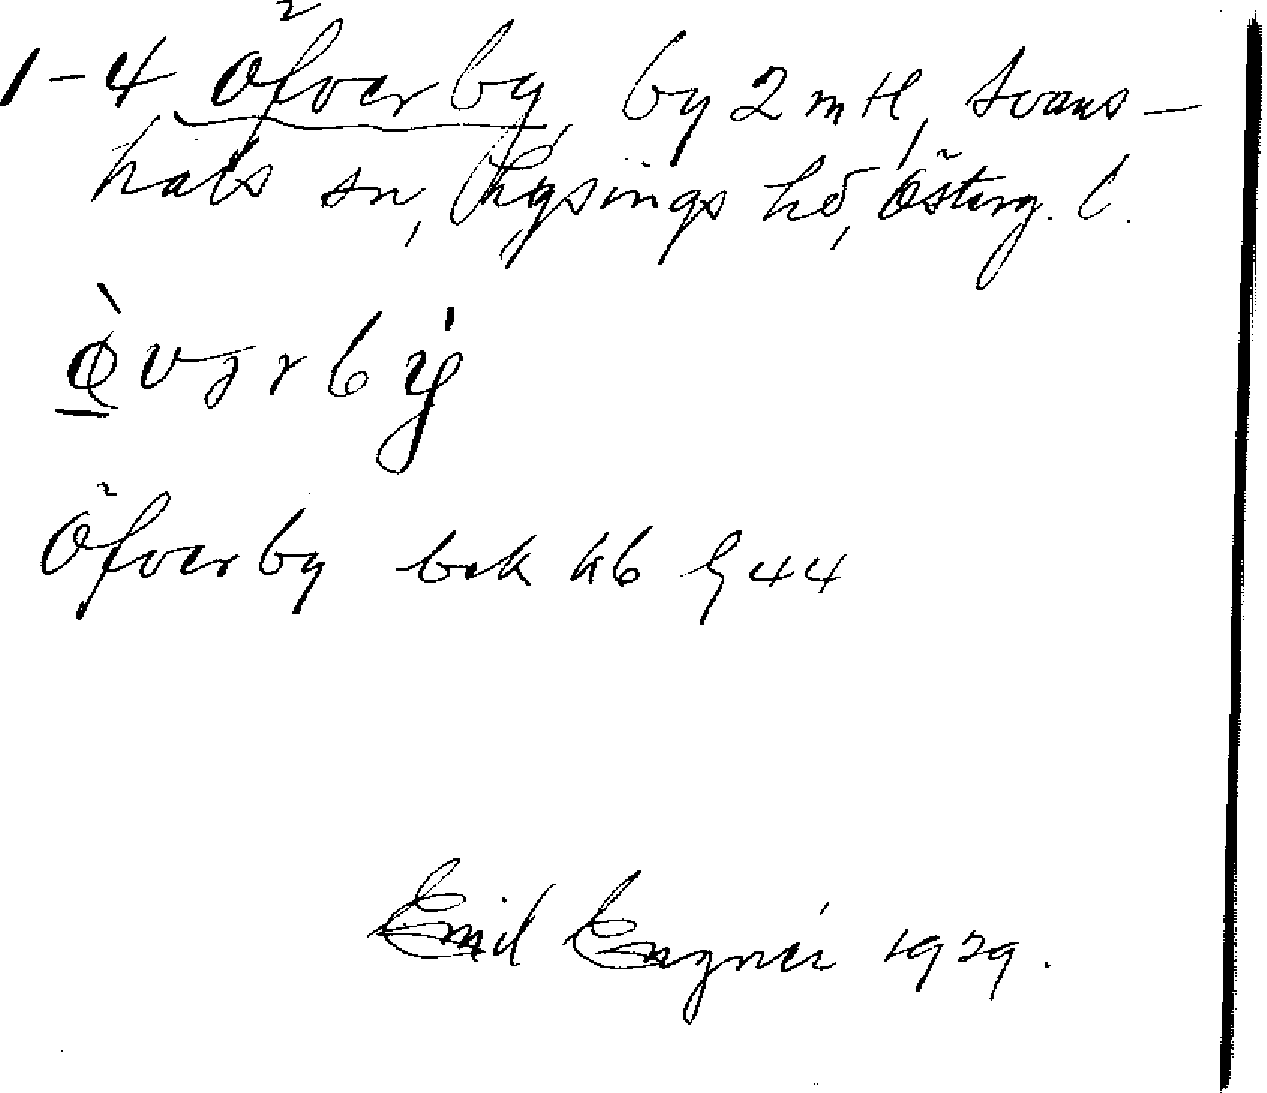 1-4 Öfverby, by 2 m H, Svans-
hals sn, Lysings hd, Österg. l.
Öfverby bok kb § 44
Emil Engnér 1929.